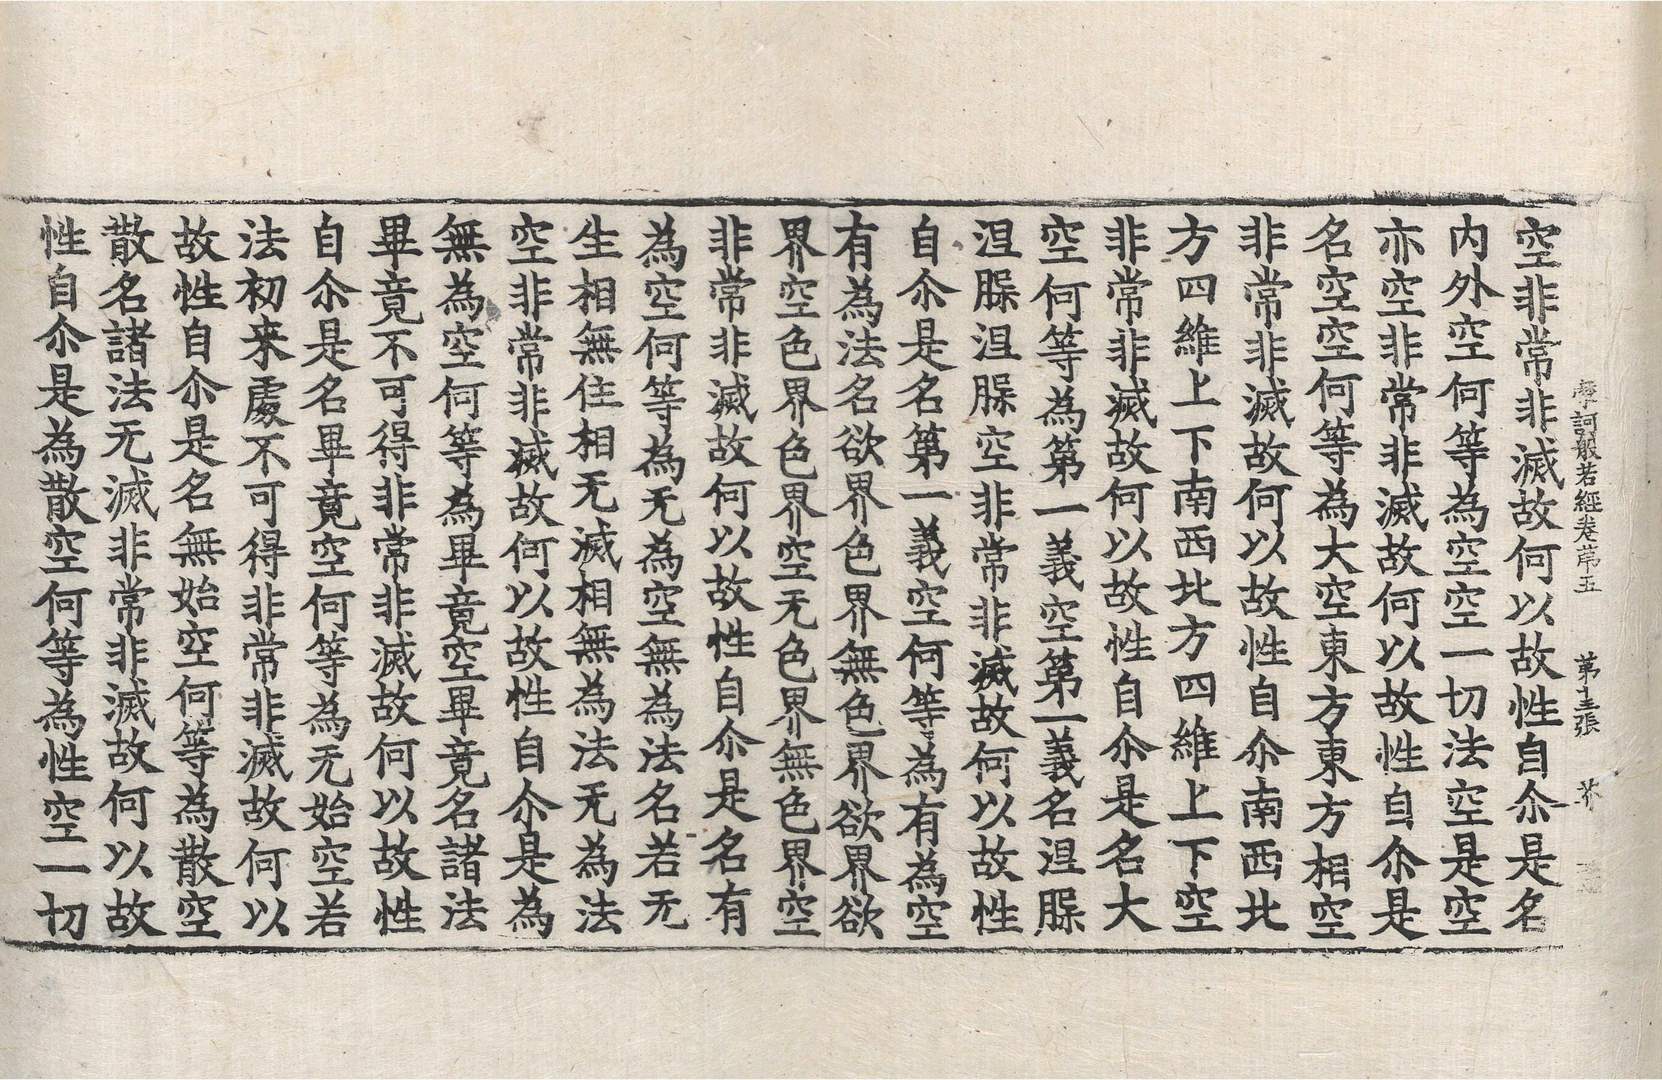 摩訶般若經卷苐五　第　張　芥
空非常非滅故何以故性自尒是名
内外空何等為空空一切法空是空
亦空非常非滅故何以故性自尒是
名空空何等為大空東方東方相空
非常非滅故何以故性自尒南西北
方四維上下南西北方四維上下空
非常非滅故何以故性自尒是名大
空何等為第一義空第一義名涅
涅空非常非滅故何以故性
自尒是名第一義空何等為有為空
有為法名欲界色界無色界欲界欲
界空色界色界空无色界無色界空
非常非滅故何以故性自尒是名有
為空何等為无為空無為法名若无
生相無住相无滅相無為法无為法
空非常非滅故何以故性自尒是為
無為空何等為畢竟空畢竟名諸法
畢竟不可得非常非滅故何以故性
自尒是名畢竟空何等為无始空若
法初来處不可得非常非滅故何以
故性自尒是名無始空何等為散空
散名諸法无滅非常非滅故何以故
性自尒是為散空何等為性空一切